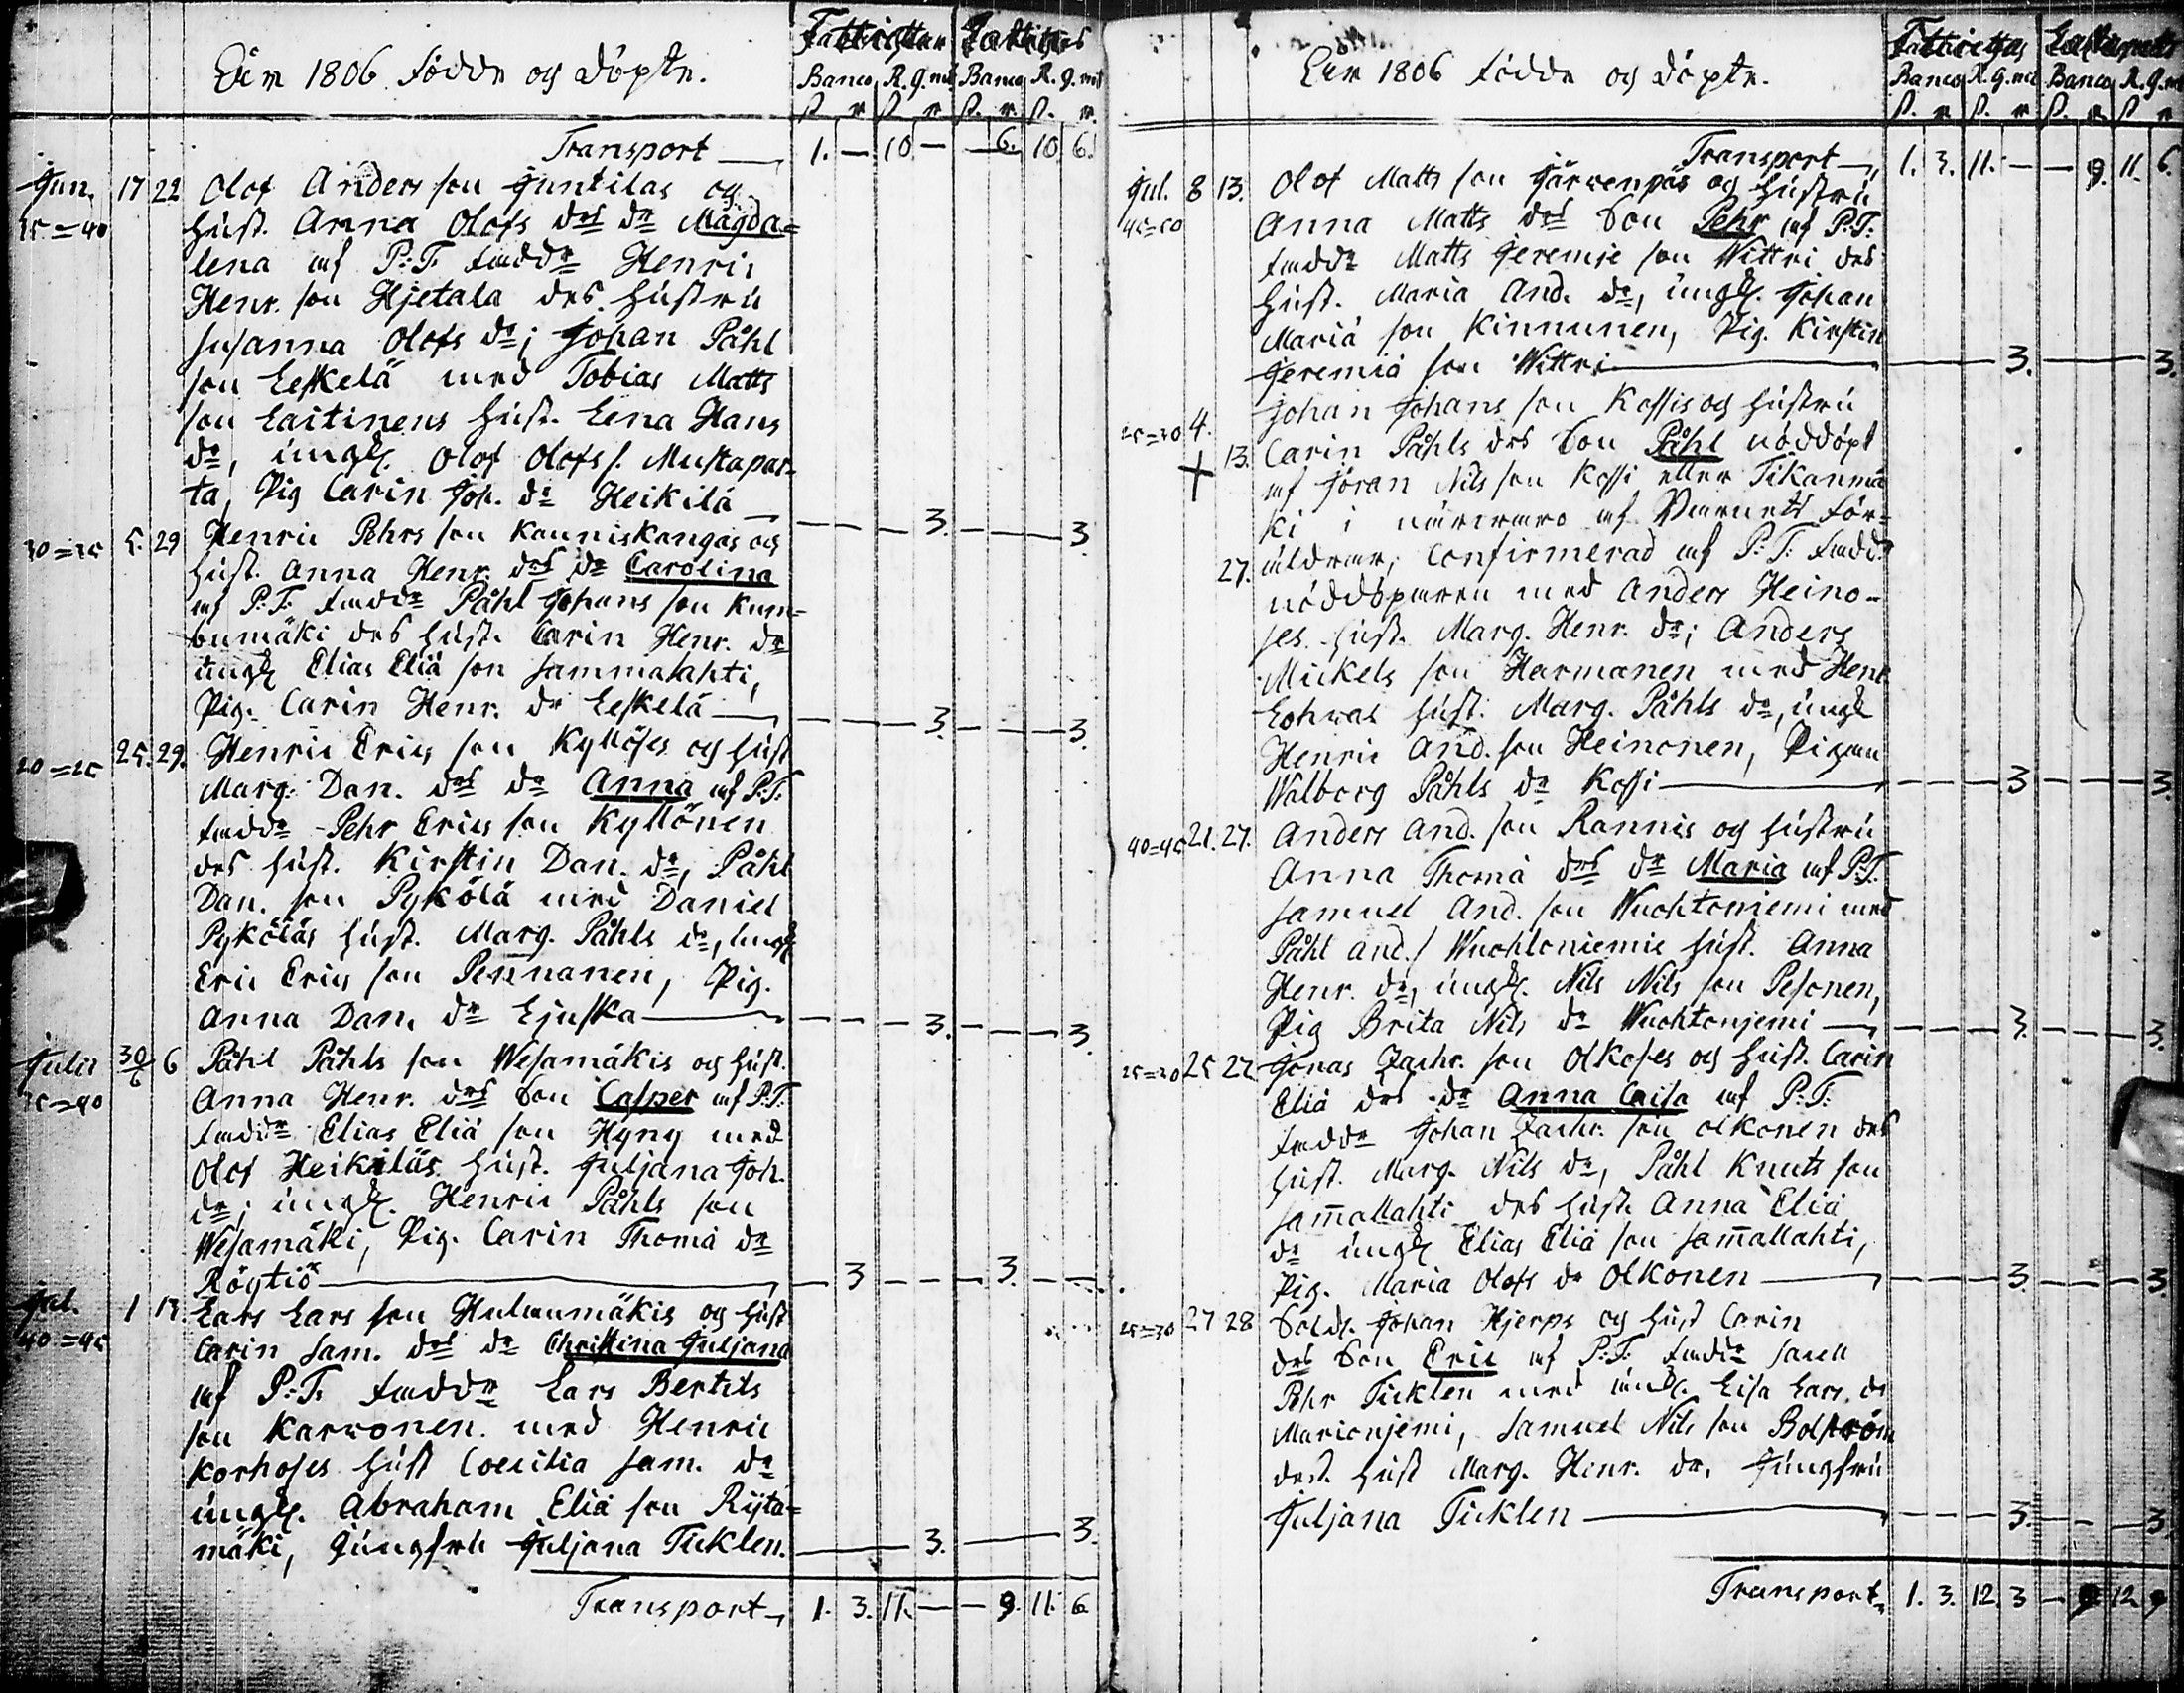 1806 födde och döpte.
Banco R. g. mt Banco R. g. mt
Transport 1. — 10 — — 6. 10 6.
Jun. 17 22 Olof Andersson Juntilas och
hust. Anna Olofs drs dr Magda=
lena af P: T: fadd: Henric
Henr. son Hjetala des hustru
Susanna Olofs dr; Johan Påhl
son Leskelä med Tobias Matts
son Laitinens hust. Lena Hans
dr, ungk. Olof Olofs s. Mustapar=
ta, Pig Carin Joh. dr Heikilä — 3. — 3
30=35 5. 29 Henric Pehrs son Kanniskangas och
hust. Anna Henr. drs dr Carolina
af P: T: fadd: Påhl Johans son Kum=
bumäki des hust. Carin Henr. dr
ungk Elias Eliä son Sammalahti,
Pig. Carin Henr. dr Leskelä — 3. — 3.
20=25 25. 29. Henric Erics son Kyllöses och hust
Marg. Dan. drs dr Anna af P: T:
fadd: Pehr Erics son Kyllönen
des hust. Kirstin Dan. dr, Påhl
Dan. son Pykölä med Daniel
Pyköläs hust. Marg. Påhls dr, ungk
Eric Erics son Pennanen, Pig.
Anna Dan. dr Ljuska — 3. — 3.
Julii 30/6 6 Påhl Påhls son Wesamäkis och hust.
35=40 Anna Henr. drs Son Casper af P: T:
fadd: Elias Eliä son Hyny med
Olof Heikiläs hust. Juljana Joh.
dr; ungk. Henric Påhls son
Wesamäki, Pig. Carin Thomä dr
Röytiö — 3 — 3. —
Jul. 1 13. Lars Lars son Hulmumäkis och hust
40=45 Carin Sam. drs dr Christina Juljana
af P: T: fadd: Lars Bertils
son Karvonen med Henric
Korhoses hust Coecilia Sam. dr
ungk. Abraham Eliä son Rytä=
mäki, Jungfru Juljana Ticklen. — 3. — 3.
Transport 1. 3. 11. — — 9. 11. 6
1806 födde och döpte.
Banco R. g. mt Banco R. g. mt
Transport 1. 3. 11. — — 9. 11. 6.
Jul. 8 13. Olof Matts son Järwenpäs och hustru
45=50 Anna Matts drs Son Pehr af P: T:
fadd: Matts Jeremiæ son Wittri des
hust. Maria And. dr, ungk. Johan
Mariä son Kinnunen, Pig. Kirstin
Jeremiä son Wittri — 3. — 3.
Johan Johans son Kossis och hustru
25=30 4. 13. Carin Påhls drs Son Påhl nöddöpt
af Jöran Nils son Kossi eller Tikanmä
ki i närvaro af Barnets för=
27. äldrar; Confirmerad af P: T: fadd:
nöddöparen med Anders Heino=
ses hust. Marg. Henr. dr; Anders
Mickels son Harmanen med Henr
Lohwas hust. Marg. Påhls dr, ungk
Henric And. son Heinonen, Pigan
Walborg Påhls dr Kossi — 3 — 3.
40=45 21. 27. Anders And. son Rannis och hustru
Anna Thomä drs dr Maria af P: T:
Samuel And. son Wuohtoniemi med
Påhl And. s Wuohtoniemis hust. Anna
Henr. dr, ungk. Nils Nils son Pesonen,
Pig Brita Nils dr Wuohtonjemi — 3. — 3.
25=30 25 27 Jonas Zachr. son Olkoses och hust. Carin
Eliä drs dr Anna Caisa af P: T:
fadd: Johan Zachr. son Olkonen des
hust. Marg. Nils dr, Påhl Knuts son
Sam̅allahti des hust. Anna Eliä
dr ungk Elias Eliä son Sam̅allahti,
Pig. Maria Olofs dr Olkonen — 3. — 3
25=30 27 28 Sold. Johan Hjerps och hust Carin
drs Son Eric af P: T: fadd:
Pehr Ticklen med Lisa Lars. dr
Marionjemi, Samuel Nils son Bolström
dess hust Marg. Henr. dr, Jungfru
Juljana Ticklen — 3. — 3
Transport 1. 3. 12. 3 — 9 12. 9